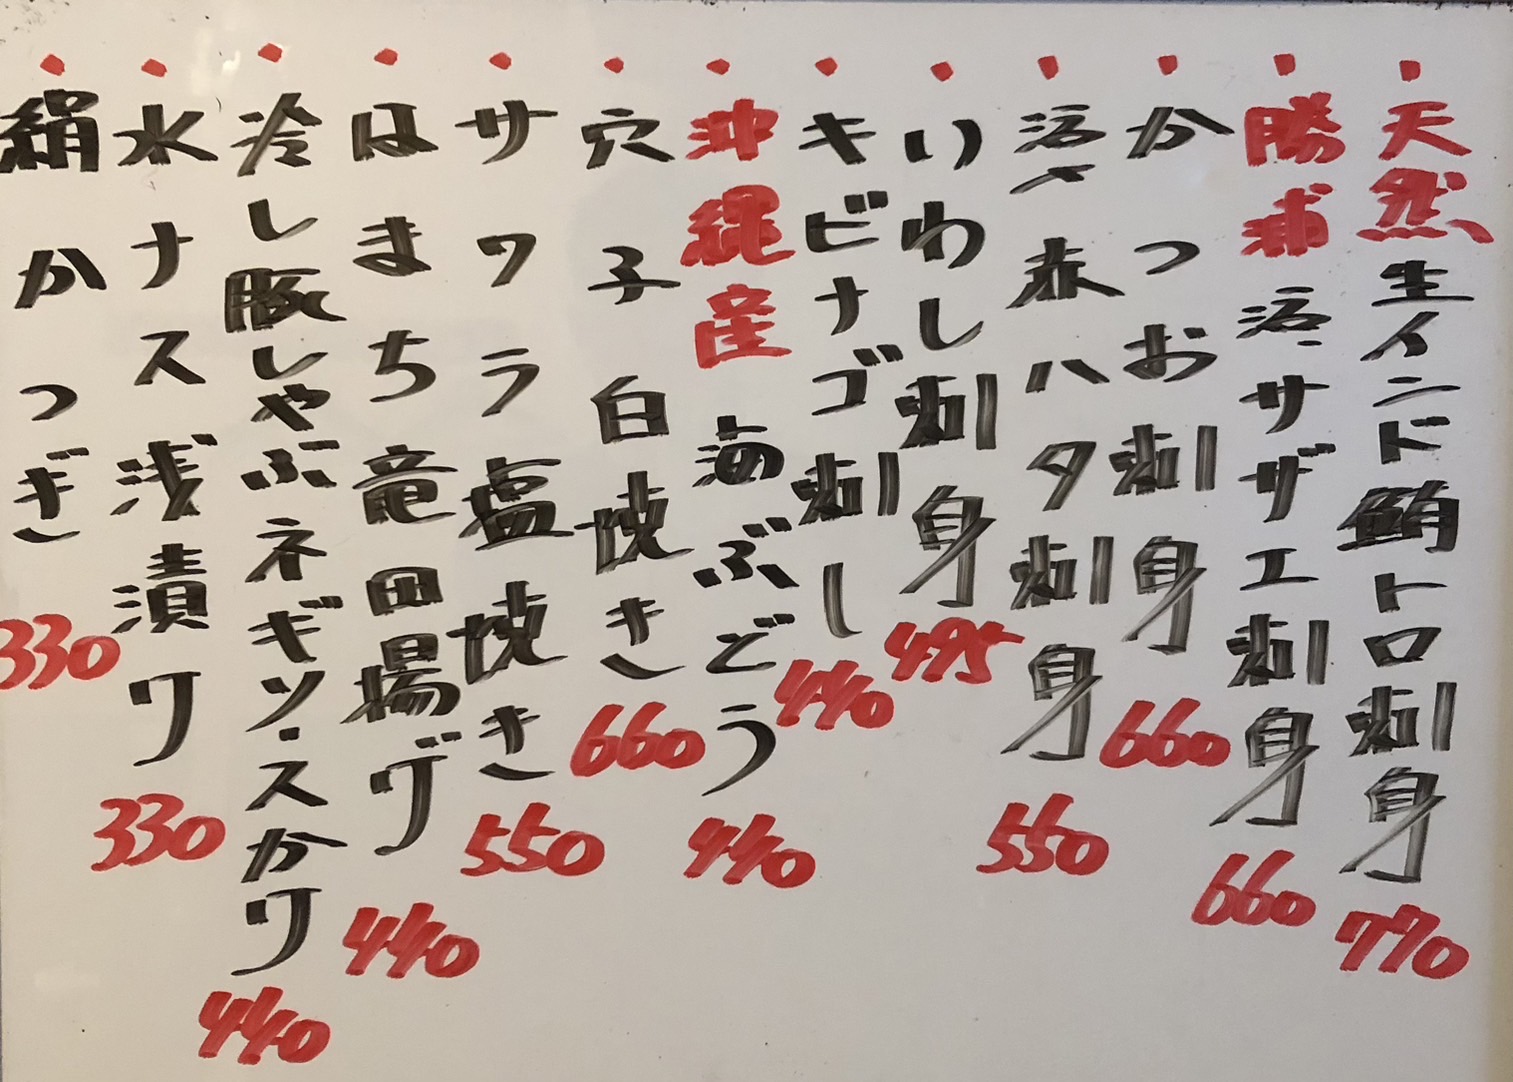 天然生インド鮪トロ刺身 770
勝浦活サザエ刺身 660
かつお刺身 660
活〆赤ハタ刺身 550
いわし刺身 495
キビナゴ刺し 440
沖縄産海ぶどう 440
穴子白焼き 660
サワラ塩焼き 550
はまち竜田揚げ 440
冷し豚しゃぶネギソースがけ 440
水ナス浅漬け 330
絹かつぎ 330